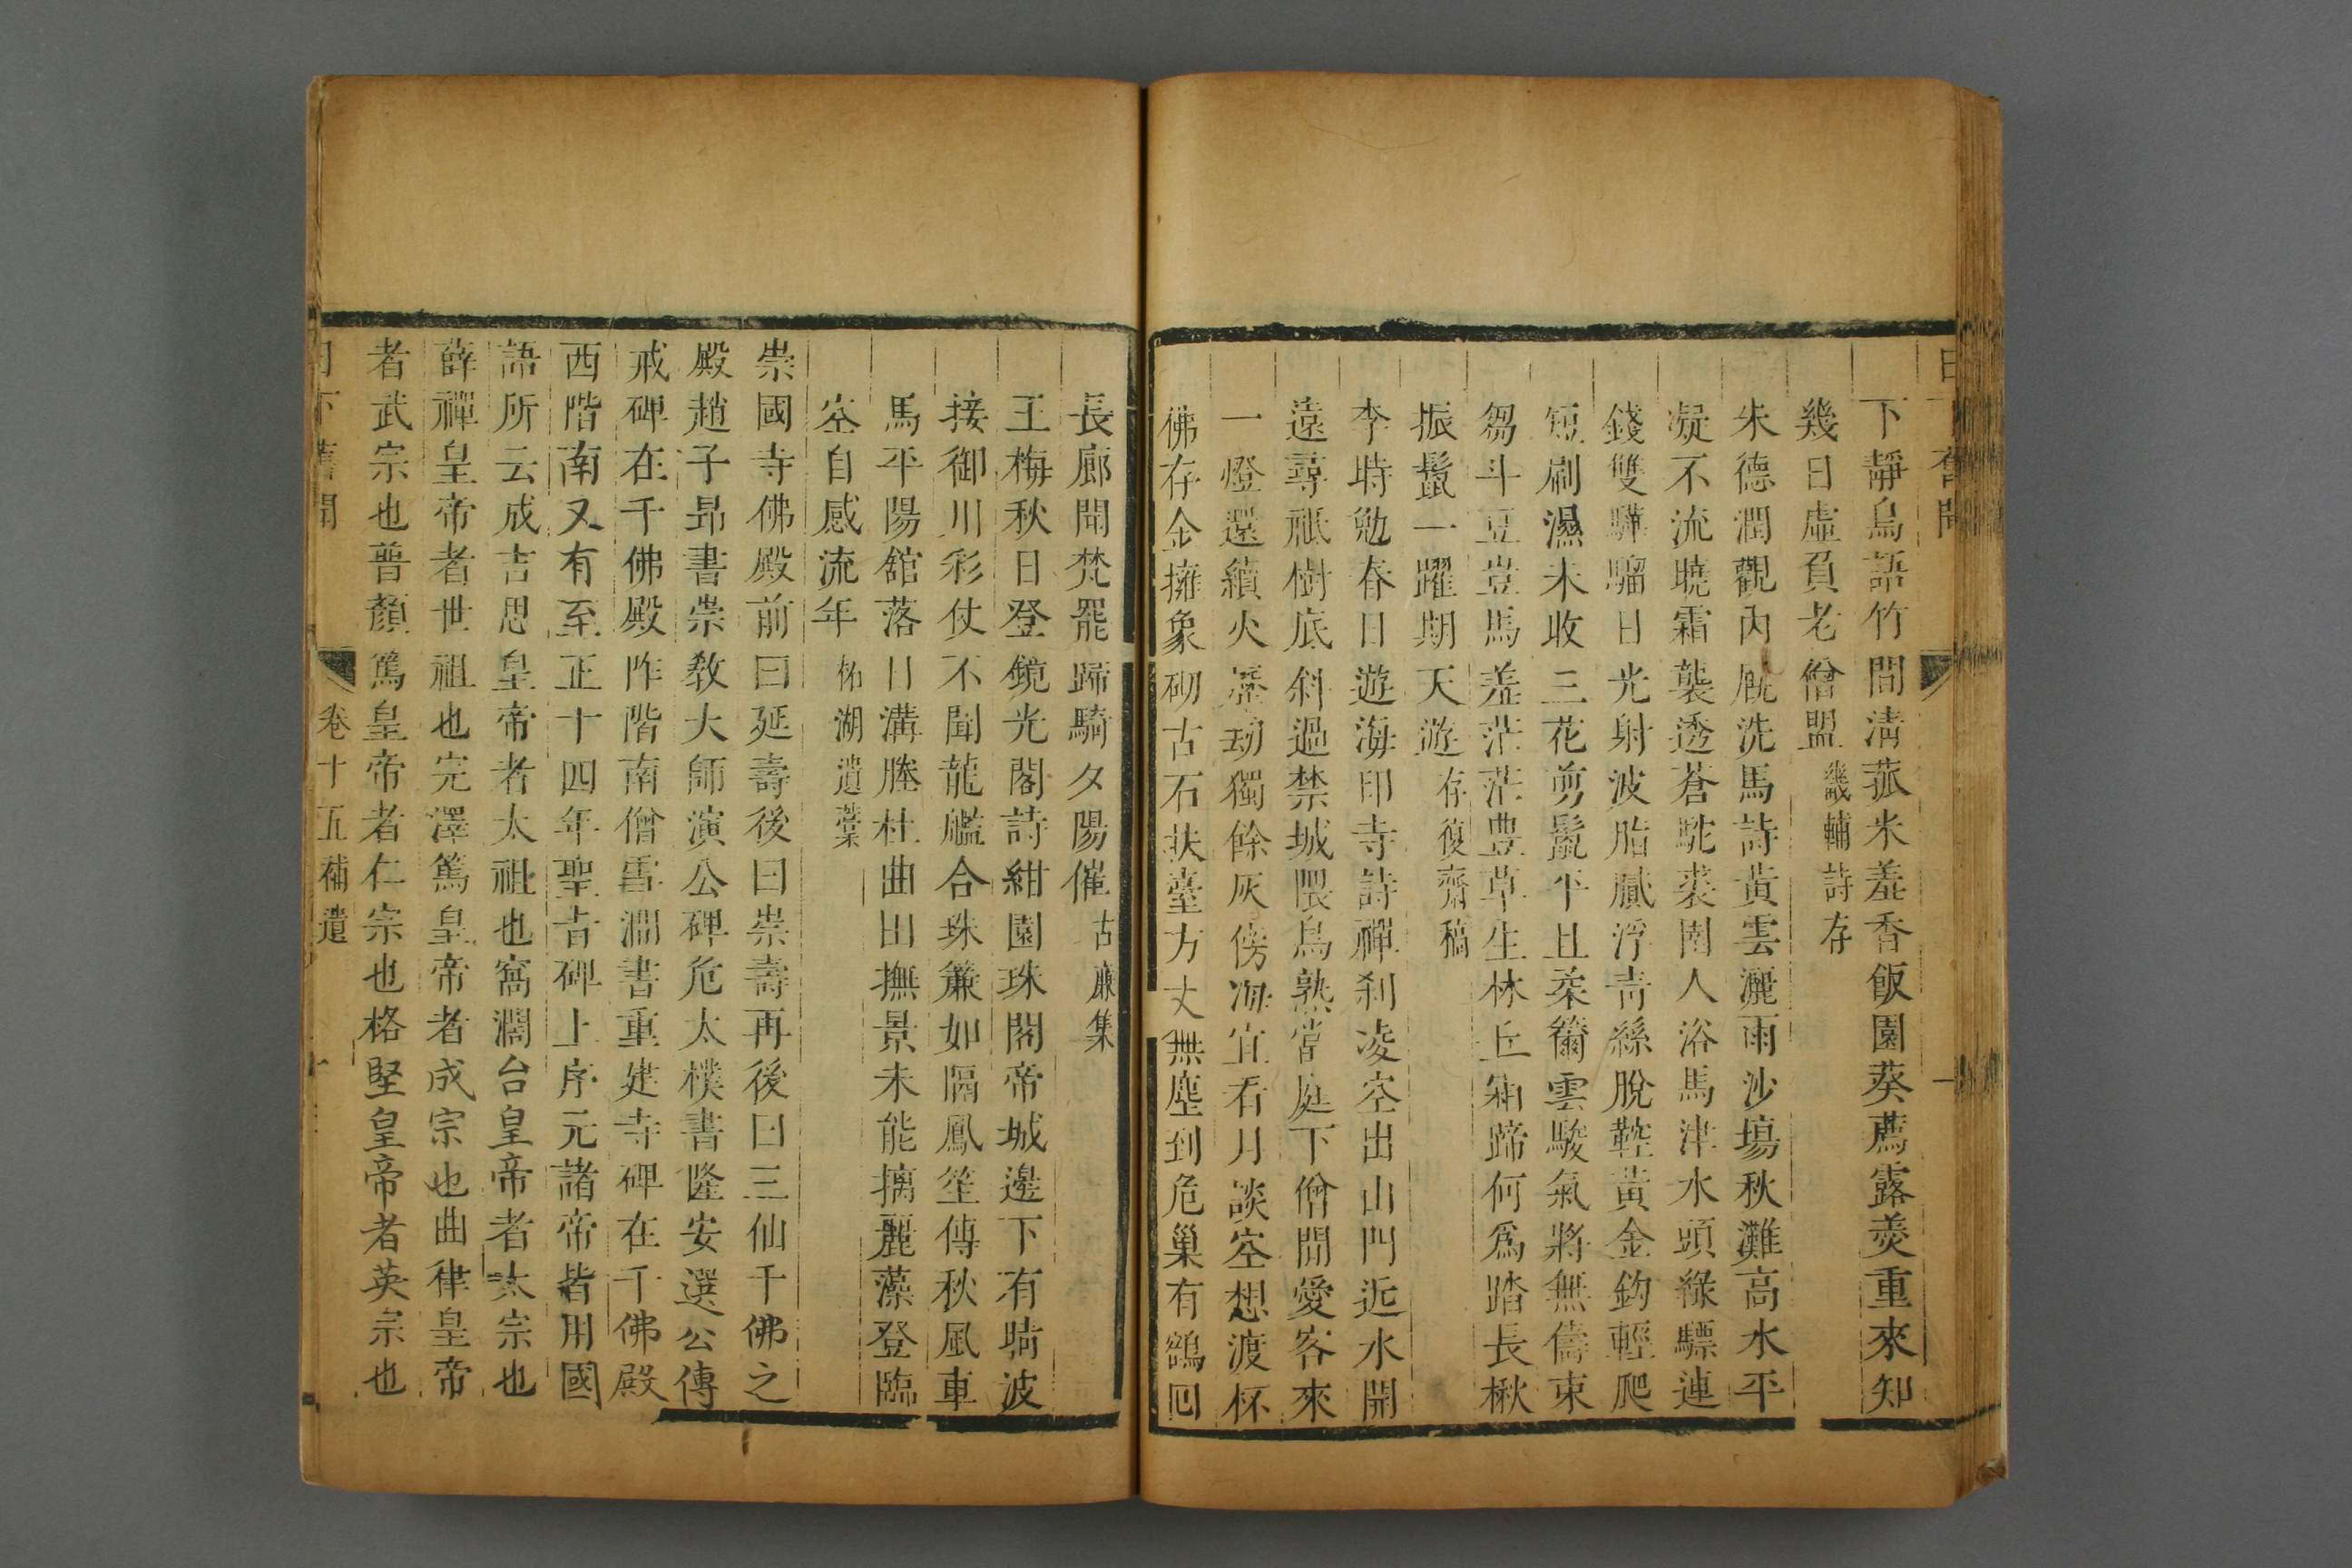 下靜鳥語竹間淸菰米羞香飯園葵薦露羮重來知
幾日虛負老僧盟畿輔詩存
朱德潤觀內廐洗馬詩黃雲灑雨沙塲秋灘高水平
凝不流曉霜襲透蒼駝裘圉人浴馬津水頭綠驃連
錢雙驊騮日光射波脂膩浮靑絲脫鞚黃金鈎輕爬
短刷濕未收三花剪鬛平且柔籋雲駿氣將無儔束
芻斗豆豈馬羞茫茫豊草生林丘霜蹄何爲踏長楸
振鬛一躍期天遊存復齋稿
李時勉春日遊海印寺詩禪刹凌空出山門近水開
遠尋祗樹底斜過禁城隈鳥熟當庭下僧閒愛客來
一燈還續火塵刼獨餘灰傍海宜看月談空想渡杯
佛存金擁象砌古石扶臺方丈無塵到危巢有鶴回
長廊聞梵罷歸騎夕陽催古廉集
王梅秋日登鏡光閣詩紺園珠閣帝城邊下有騎波
接御川彩仗不聞龍艦合珠簾如隔鳳笙傳秋風車
馬平陽舘落日溝塍杜曲田撫景未能摛麗藻登臨
空自感流年柘湖遺藁
崇國寺佛殿前曰延壽後曰崇壽再後曰三仙千佛之
殿趙子昻書崇敎大師演公碑危太樸書隆安選公傳
戒碑在千佛殿阼階南僧雪澗書重建寺碑在千佛殿
西階南又有至正十四年聖旨碑上序元諸帝皆用國
語所云成吉思皇帝者太祖也窩濶台皇帝者太宗也
薛禪皇帝者世祖也完澤篤皇帝者成宗也曲律皇帝
者武宗也普顏篤皇帝者仁宗也格堅皇帝者英宗也
日下舊聞 卷十五補遺